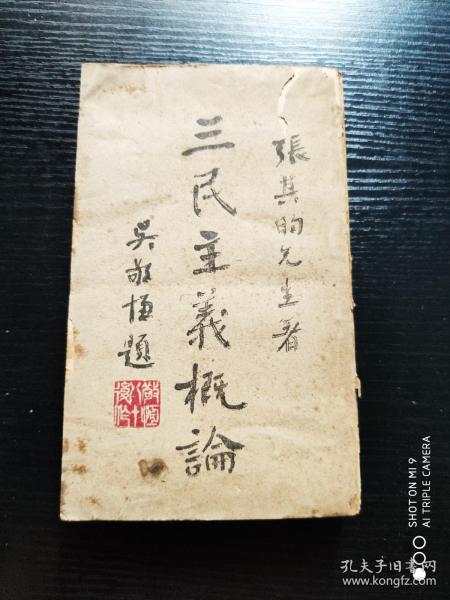 張其昀先生著
三民主義概論
吳敬恆題
SHOT ON MI 9
AI TRIPLE CAMERA
孔夫子旧书网
www.kongfz.com